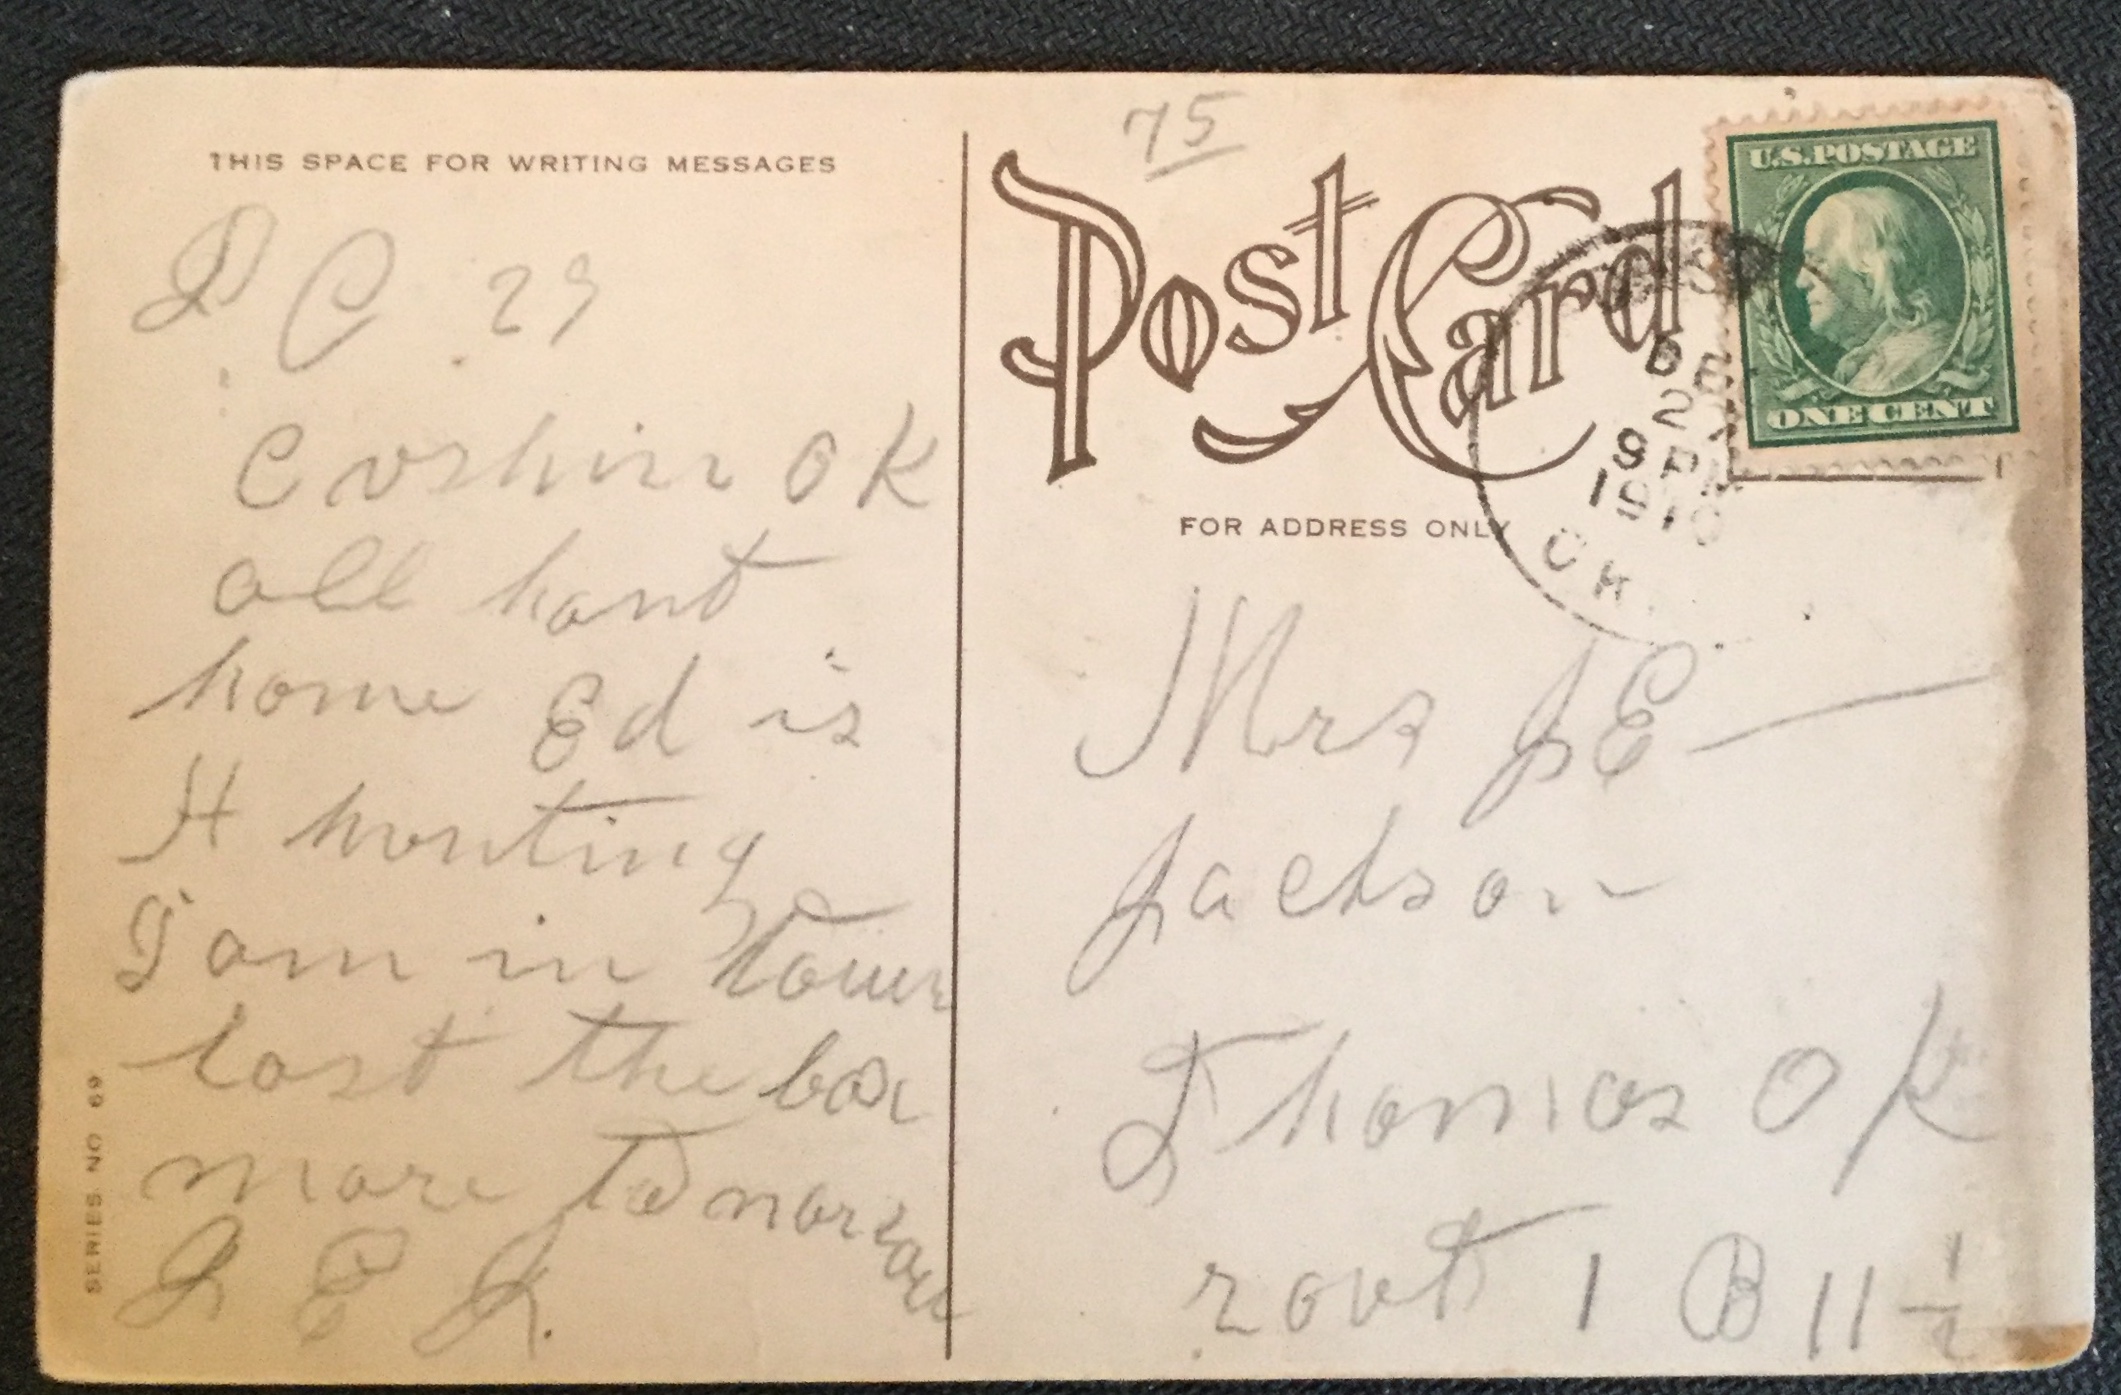 THIS SPACE FOR WRITING MESSAGES
D C 29
Cushin OK
all hont
home Ed is
H honting
I am in town
lost the box
more to norrow
J E J.
SERIES NO 69
75
Post Card
U.S. POSTAGE
ONE CENT
DE
27
9 PM
1910
OK
FOR ADDRESS ONLY
Mrs J E
Jackson
Thomas OK
rout 1 B 11 1/2